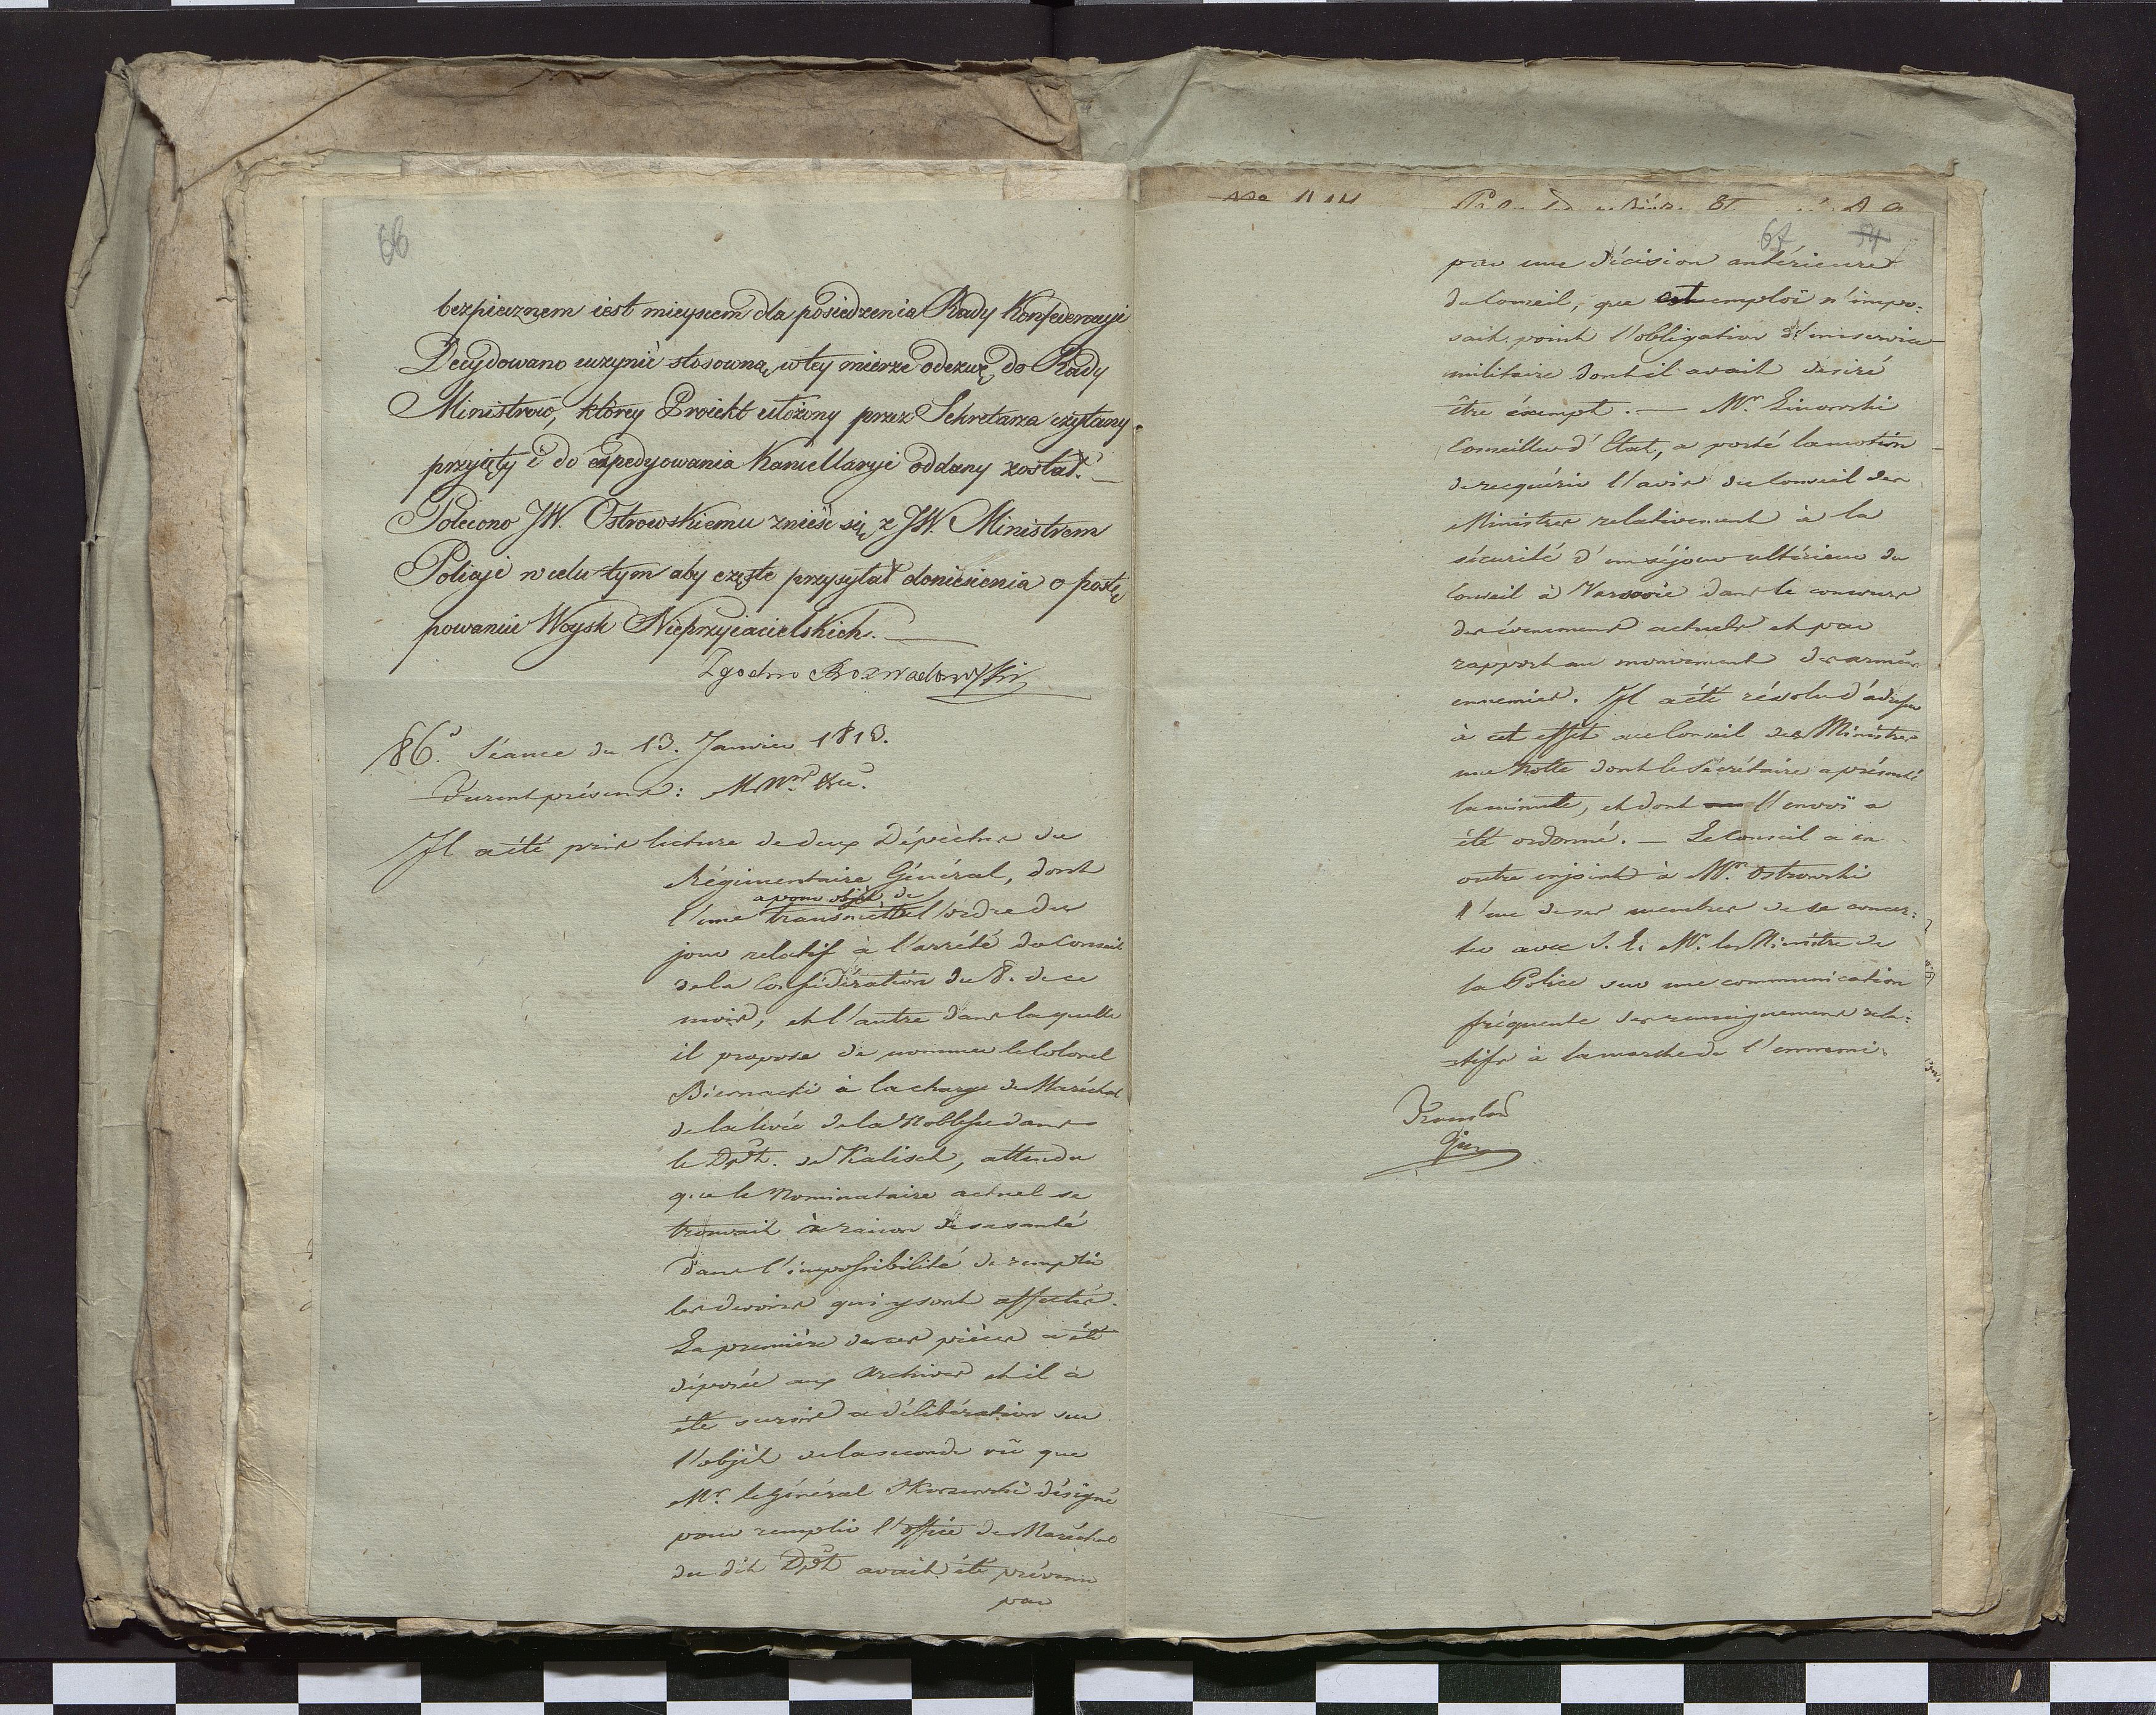 66
bezpiecznem iest mieyscem dla posiedzenia Rady Konfederacyi
Decydowano uczynić stosowną w tey mierze odezwę do Rady
Ministrów, którey Proiekt ułożony przez Sekretarza czytany
przyięty i do expedyowania Kancellaryi oddany został. —
Polecono JW. Ostrowskiemu znieść się z JW. Ministrem
Policyi w celu tym aby częste przysyłał doniesienia o postę
powaniu Woysk Nieprzyiacielskich. —
Zgodno Rozwadowski
86. Séance du 13. Janvier 1813.
Furent présens: M.
Il a été pris lecture de deux Dépêches du
Régimentaire Général, dont
a pour objet de
l'une transmettre l'ordre du
jour relatif à l'arrêté du Conseil
de la Confédération du 8. de ce
mois, et l'autre dans laquelle
il propose de nommer le Colonel
Biernacki à la charge de Maréchal
de la levée de la Noblesse dans
le Dpt. de Kalisch, attendu
que le Nominataire actuel se
trouvait à raison de sa santé
dans l'impossibilité de remplir
les devoirs qui y sont affectés.
La première de ces pièces a été
déposée aux Archives et il a
été sursis à délibération sur
l'objèt de la seconde vû que
Mr. le Général Skorzewski désigné
pour remplir l'office de Maréchal
du dit Dpt avait été prévenu
par
67 54
par une décision antérieure
du Conseil, que cet emploi n'impo=
sait point l'obligation d'un service
militaire dont il avait désiré
être éxempt. — Mr. Linowski
Conseiller d'Etat, a porté la motion
de requérir l'avis du Conseil des
Ministres relativement à la
sécurité d'un séjour ultérieur du
Conseil à Varsovie dans le concours
des évenemens actuels et par
rapport au mouvement des armées
ennemies. Il a été résolu d'adresser
à cet effèt au Conseil des Ministres
une Notte dont le Sécrétaire a présenté
la minute, et dont l'envoi a
été ordonné. — Le Conseil a en
outre enjoint à Mr. Ostrowski
l'un de ses membres de se concer=
ter avec S. E. Mr. le Ministre de
la Police sur une communication
fréquente des renseignemens rela=
tifs à la marche de l'ennemi.